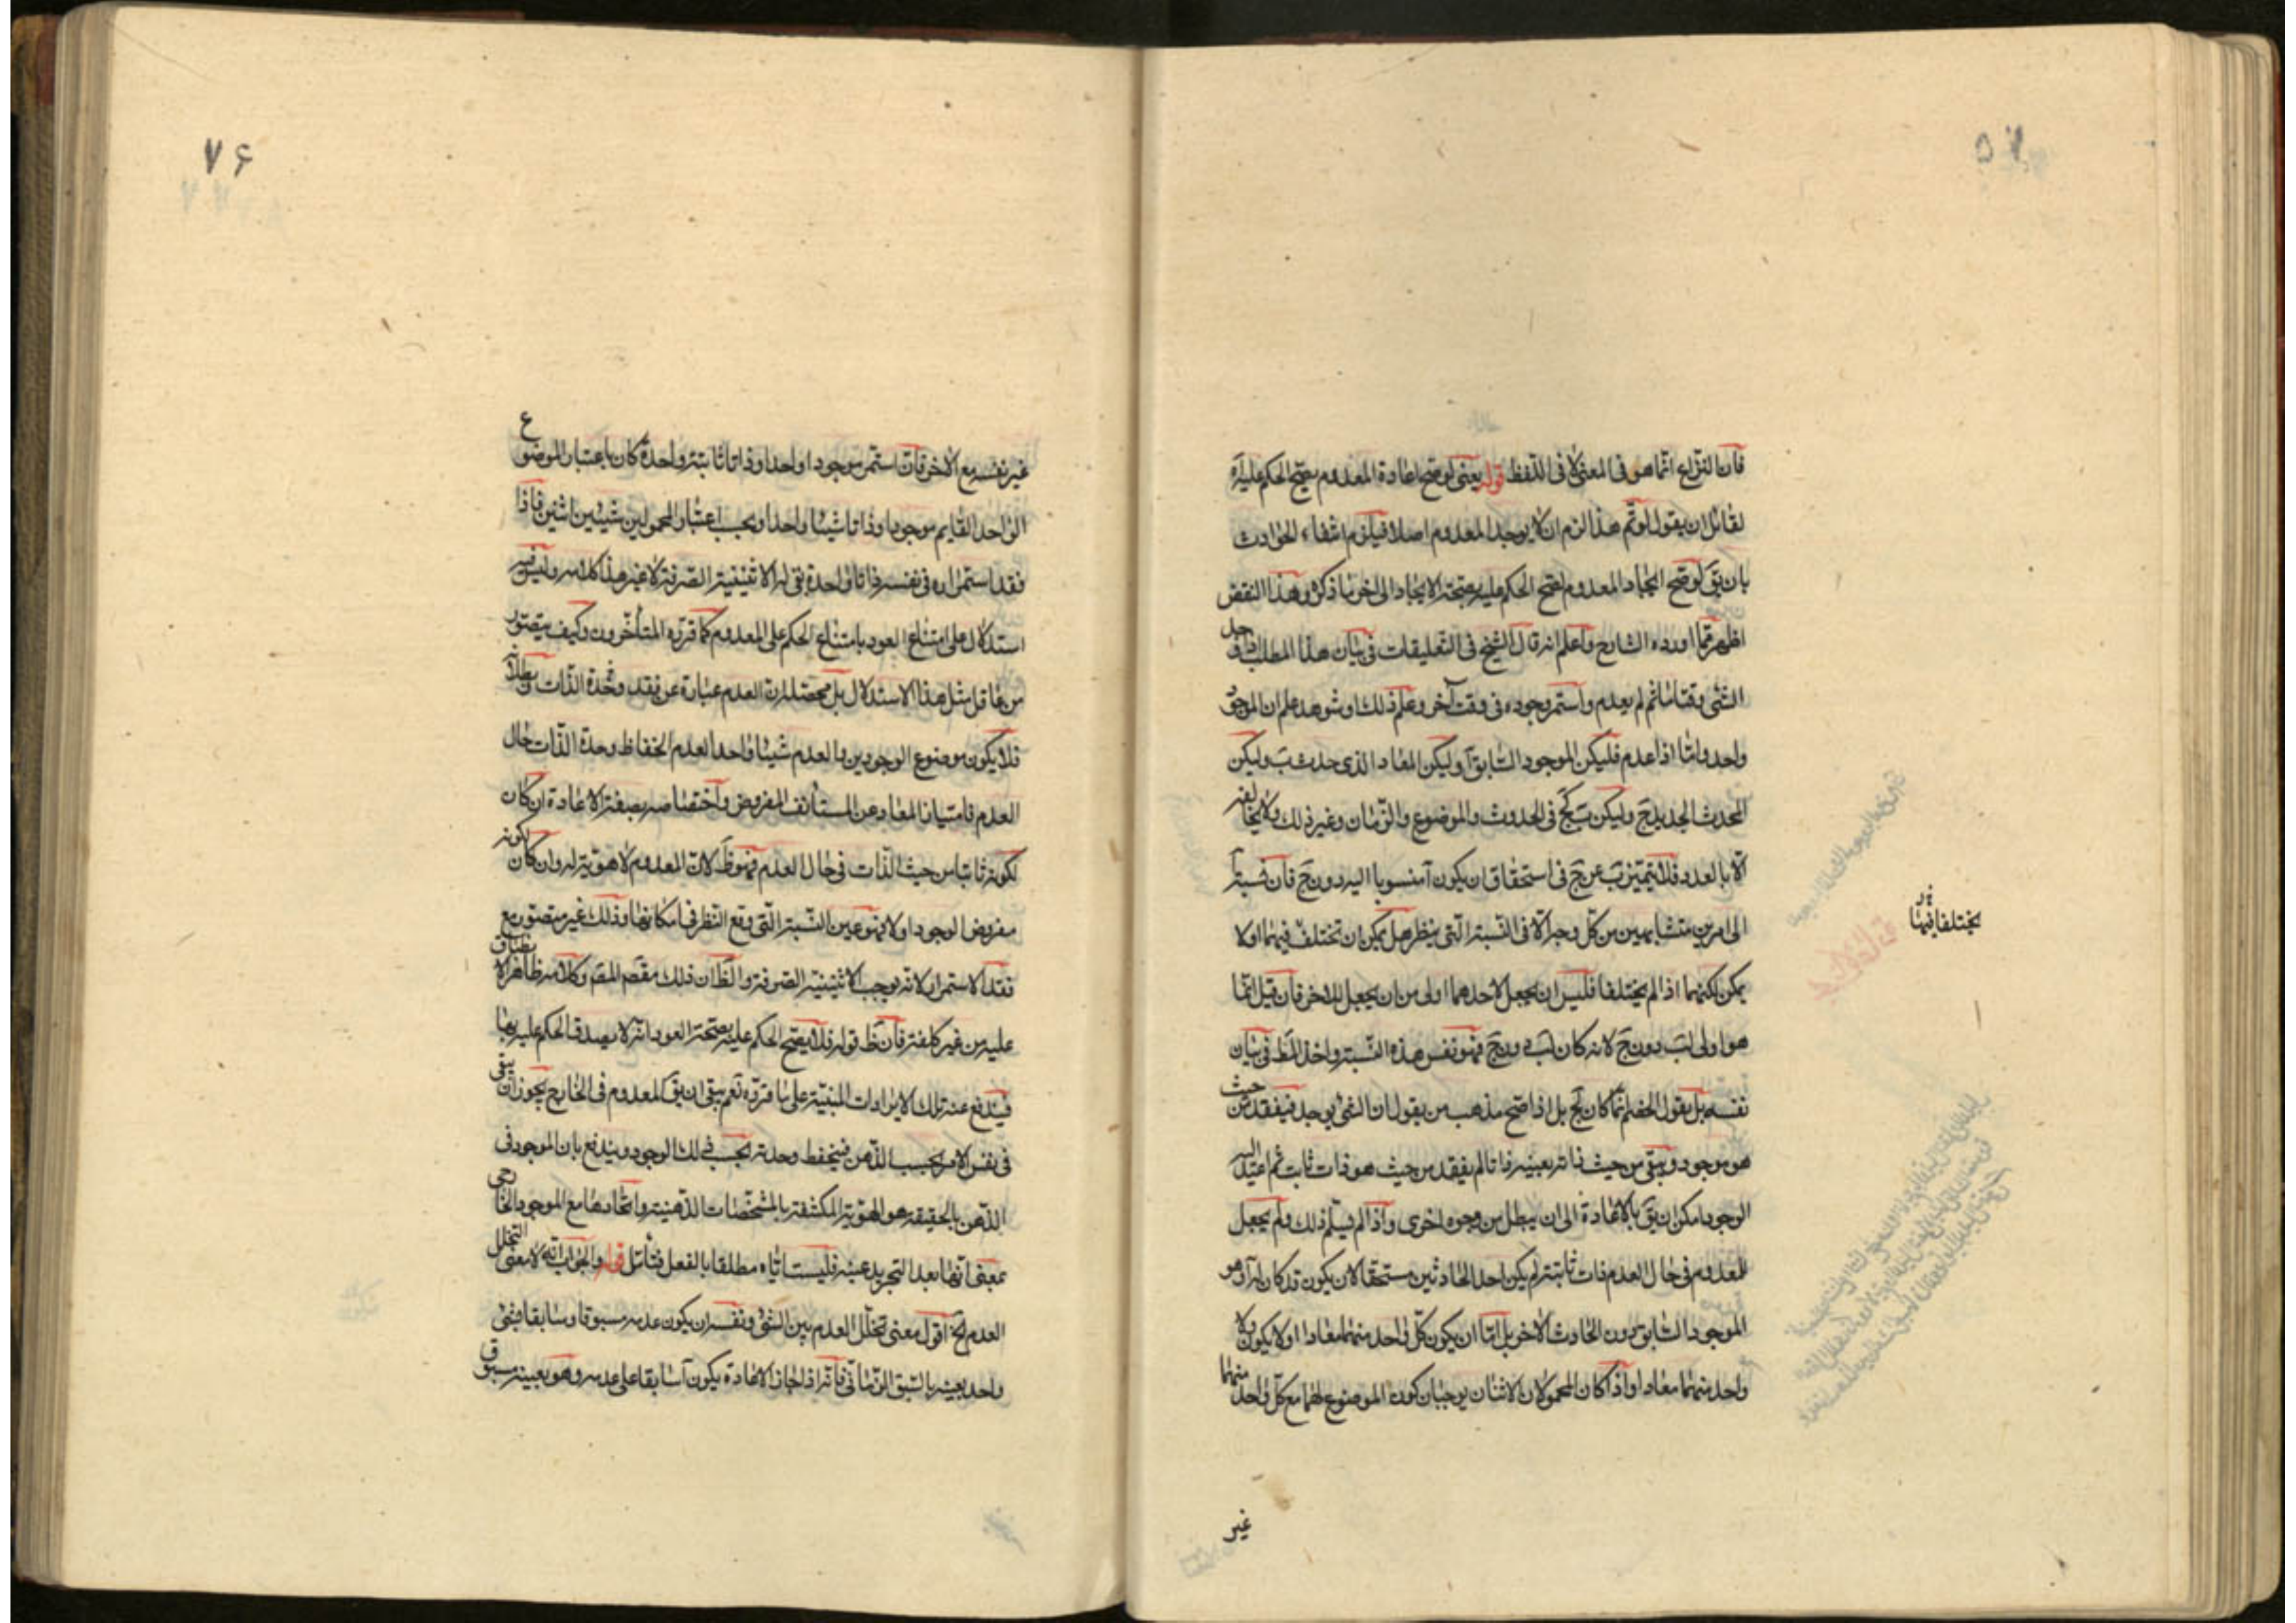 فان النزاع انما هو فى المعنى لا فى اللفظ قوله يعنى لو صح اعادة المعدوم يصح الحكم عليه آه
لقائل ان يقول لو تم هذا لزم ان لا يوجد المعدوم اصلا فيلزم انتفاء الحوادث
بان يق لو صح ايجاد المعدوم لصح الحكم عليه بصحة الايجاد الى اخر ما ذكره وهذا النقض
اظهر مما اورده الشارح واعلم انه قال الشيخ فى التعليقات فى بيان هذا المطلب اذا وجد
الشئ وقتا ما ثم لم يعدم واستمر وجوده فى وقت آخر وعلم ذلك او شوهد علم ان الموجود
واحد واما اذا عدم فليكن الموجود السابق آ وليكن المعاد الذى حدث ب وليكن
المحدث الجديد ج وليكن ب كج فى الحدوث والموضوع والزمان وغير ذلك ولا يخالفه
الا بالعدد فلا يتميز ب عن ج فى استحقاق ان يكون آ منسوبا اليه دون ج فان نسبة آ
الى امرين متشابهين من كل وجه الا فى النسبة التى ينظر هل يمكن ان تختلف فيهما او لا
يمكن لكنهما اذا لم يختلفا فليس ان يجعل لاحدهما اولى من ان يجعل للاخر فان قيل انما
هو اولى لب دون ج لانه كان لب دون ج فهو نفس هذه النسبة واخذ المط فى بيان
نفسه بل يقول الخصم انما كان لج بل اذا صح مذهب من يقول ان الشئ يوجد فيفقد من حيث
هو موجود ويبقى من حيث ذاته بعينه ذاتا لم يفقد من حيث هو ذات ثابت ثم اعيد اليه
الوجود امكن ان يق بالاعادة الى ان يبطل من وجوه اخرى واذا لم يسلم ذلك ولم يجعل
للمعدوم فى حال العدم ذات ثابتة لم يكن احد الحادثين مستحقا لان يكون قد كان له آ وهو
الموجود السابق دون الحادث الاخر بل اما ان يكون كل واحد منهما معادا او لا يكون ولا
واحد منهما معادا واذا كان المحمولان الاثنان يوجبان كون الموضوع لهما مع كل واحد منهما
يختلفا فيهما
غير
٧۶
غير نفسه مع الاخر فان استمر موجودا واحدا وذاتا ثابتة واحدة كان باعتبار الموضوع
الواحد القايم موجودا وذاتا شيئا واحدا وبحسب اعتبار المحمولين شيئين اثنين فاذا
فقد استمراره فى نفسه ذاتا واحدة بقى له الاثنينية الصرفة لا غير هذا كلامه وليس فيه
استدلال على امتناع العود بامتناع الحكم على المعدوم كما قرره المتأخرون وكيف يتصور
من عاقل مثل هذا الاستدلال بل محصله ان العدم عبارة عن فقد وحدة الذات وبطلانه
فلا يكون موضوع الوجودين والعدم شيئا واحدا لعدم انحفاظ وحدة الذات حال
العدم فامتياز المعاد عن المستأنف المفروض واختصاصه بصفة الاعادة ان كان
لكونه ثابتا من حيث الذات فى حال العدم فهو ظ لان المعدوم لا هوية له وان كان لكونه
مفروض الوجود اولا فهو عين النسبة التى وقع النظر فى امكانها وذلك غير متصور مع
فقد الاستمرار لانه يوجب الاثنينية الصرفة والظ ان ذلك مقصد المصـ وكلامه ظاهر الانطباق
عليه من غير كلفة فان ظ قوله فلا يصح الحكم عليه بصحة العود انه لا يصدق الحكم عليه بها
فيندفع عنه تلك الايرادات المبنية على ما قرروه نعم يبقى ان يق المعدوم فى الخارج يجوز ان يبقى
فى نفس الامر بحسب الذهن فينحفظ وحدته بحسب ذلك الوجود ويندفع بان الموجود فى
الذهن بالحقيقة هو الهوية المكتنفة بالمشخصات الذهنية واتحادها مع الموجود الخارجى
بمعنى انها بعد التجريد عينه فليست اياه مطلقا بالفعل فتأمل قوله والجواب انه لا معنى لتخلل
العدم الخ اقول معنى تخلل العدم بين الشئ ونفسه ان يكون عدمه مسبوقا وسابقا فشئ
واحد بعينه بالسبق الزمانى فانه اذا جاز الاعادة يكون آ سابقا على عدمه وهو بعينه مسبوق